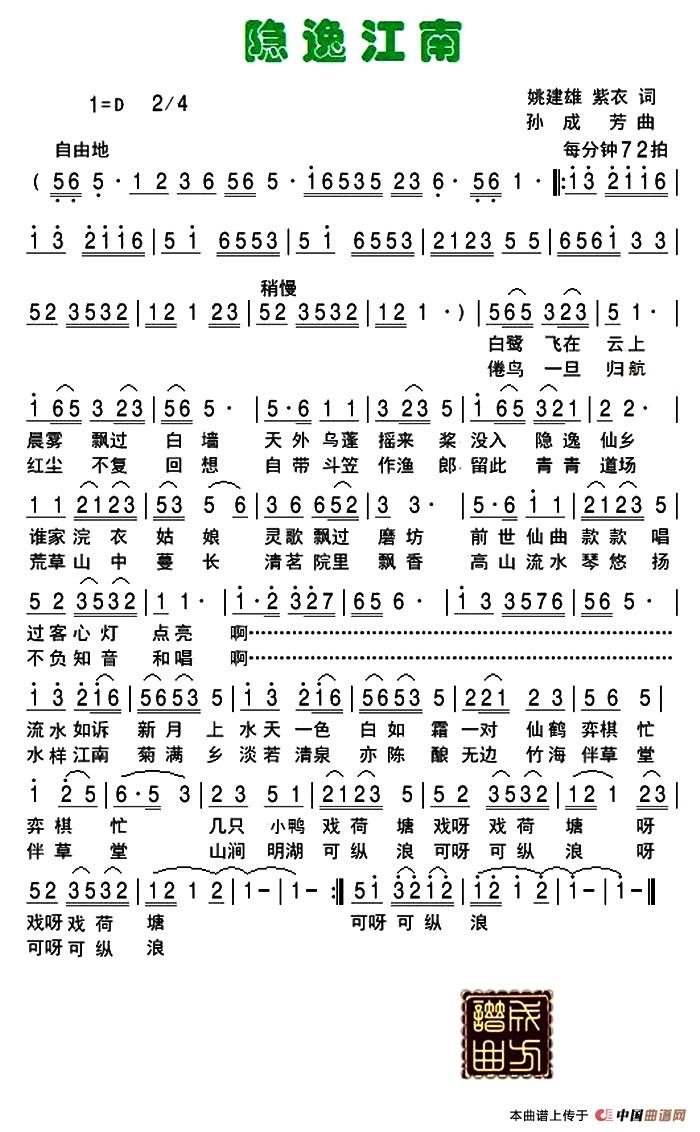 隐逸江南
1=D 2/4
姚建雄 紫衣 词
孙成芳曲
自由地
每分钟72拍
( 56 5· 12 36 56 5· 16535 23 6· 56 1· ‖: 13 2116 |
13 2116 | 51 6553 | 51 6553 | 2123 55 | 6561 33 |
稍慢
52 3532 | 12 1 23 | 52 3532 | 12 1· ) | 565 323 | 5 1· |
白鹭 飞在 云上
倦鸟 一旦 归航
165 3 23 | 56 5· | 5·6 11 | 323 5· | 165 321 | 2 2· |
晨雾 飘过 白墙 天外乌蓬 摇来 桨 没入 隐逸 仙乡
红尘 不复 回想 自带斗笠 作渔 郎 留此 青青 道场
11 2123 | 53 5 6 | 36 652 | 3 3· | 5·6 11 | 2123 5 |
谁家浣衣 姑 娘 灵歌飘过 磨坊 前世仙曲 款款唱
荒草山中 蔓 长 清茗院里 飘香 高山流水 琴悠扬
52 3532 | 1 1· | 1·2 327 | 65 6· | 13 3576 | 5 5· |
过客心灯 点亮 啊
不负知音 和唱 啊
13 216 | 565 3 | 13 216 | 565 3 | 2 221 | 56 5 |
流水如诉 新月上 水天一色 白如霜 一对仙鹤 弈棋忙
水样江南 菊满乡 淡若清泉 亦陈酿 无边竹海 伴草堂
1 25 | 6·5 3 | 23 51 | 2123 5 | 52 3532 | 12 1 23 |
弈棋 忙 几只 小鸭 戏荷塘 戏呀戏荷 塘 呀
伴草 堂 山涧 明湖 可纵浪 可呀可纵 浪 呀
52 3532 | 12 1 2 | 1- | 1- :‖ 51 3212 | 12 1 2 | 1- | 1- ‖
戏呀戏荷 塘 可呀可纵 浪
可呀可纵 浪
谱成
曲方
本曲谱上传于 中国曲谱网